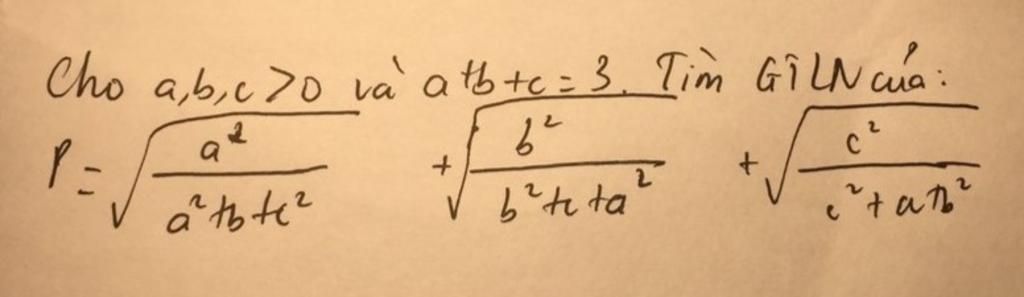 Cho a,b,c>0 và a+b+c=3. Tìm GTLN của:
P = √(a²/(a²+b+c²)) + √(b²/(b²+c+a²)) + √(c²/(c²+a+b²))